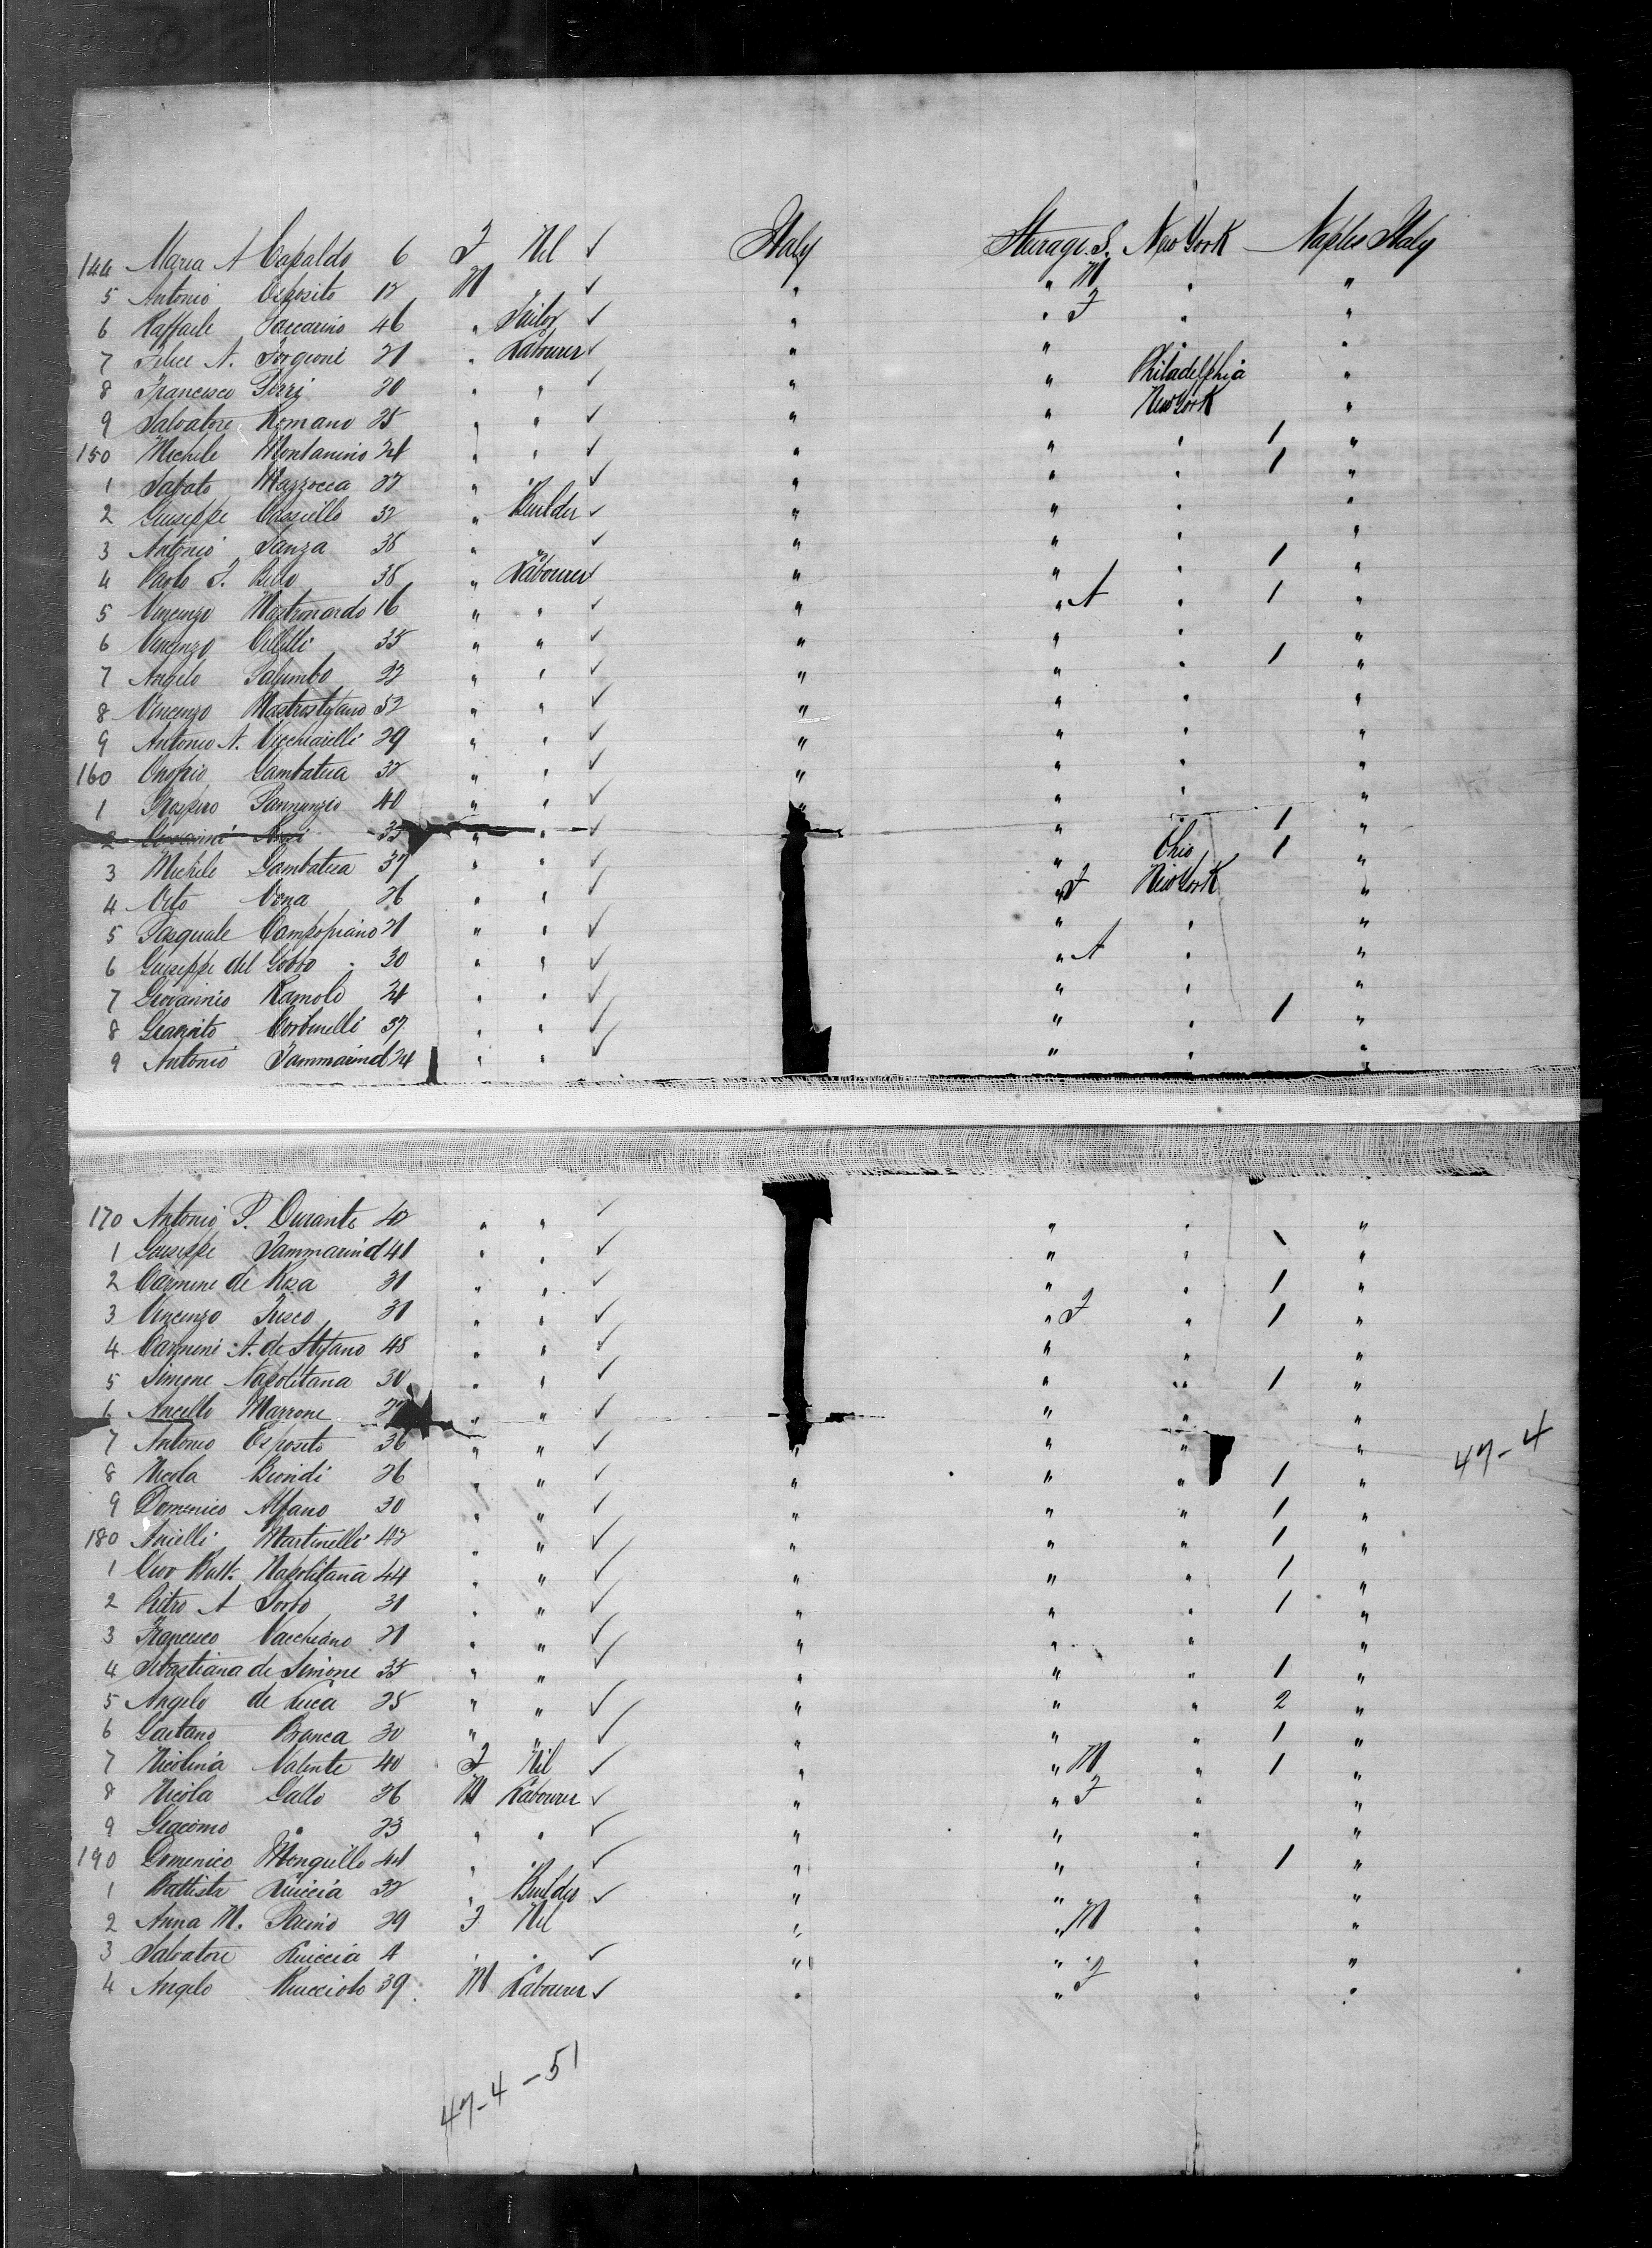 144 Maria A Capaldo 6 F Nil ✓ Italy Steerage. S. New York Naples Italy
5 Antonio Esposito 12 M ✓ " " M " "
6 Raffaele Saccarino 46 " Tailor ✓ " " F " "
7 Felice A. Forgione 21 " Labourer ✓ " " " "
8 Francesco Perri 20 " " ✓ " " Philadelphia "
9 Salvatore Romano 25 " " ✓ " " New York "
150 Michele Montanino 24 " " ✓ " " " 1 "
1 Sabato Mazzocca 27 " " ✓ " " " 1 "
2 Giuseppe Cassiello 32 " Builder ✓ " " " "
3 Antonio Panza 35 " " ✓ " " " "
4 Paolo F. Bello 35 " Labourer ✓ " " " 1 "
5 Vincenzo Mastronardo 16 " " ✓ " " A " 1 "
6 Vincenzo 35 " " ✓ " " " "
7 Angelo Palumbo 22 " " ✓ " " " 1 "
8 Vincenzo Mastrostefano 52 " " ✓ " " " "
9 Antonio N. Vecchiarelli 29 " " ✓ " " " "
160 Onofrio Gambatesa 32 " " ✓ " " " "
1 Prospero Pannunzio 40 " " ✓ " " " "
2 35 " ✓ " 1 "
3 Michele Gambatesa 37 " " ✓ " Ohio 1 "
4 Vito Vona 26 " " ✓ " F New York "
5 Pasquale Campopiano 21 " " ✓ " " "
6 Giuseppe del Gobbo 30 " " ✓ " A " "
7 Giovannio Ramolo 24 " " ✓ " " "
8 Corbinelli 37 " " ✓ " " 1 "
9 Antonio Iammarino 24 " " ✓ " " "
170 Antonio P. Durante 42 " " ✓ " " "
1 Giuseppe Iammarino 41 " " ✓ " " \ "
2 Carmine de Rosa 31 " " ✓ " " 1 "
3 Vincenzo Fusco 31 " " ✓ " F " 1 "
4 Carmine A. de Stefano 48 " " ✓ " " "
5 Simone Napolitana 30 " " ✓ " " 1 "
6 Aniello Marrone " " ✓ " " "
7 Antonio Esposito 36 " " ✓ " " " "
47-4
8 Nicola Biondi 26 " " ✓ " " " 1 "
9 Domenico Alfano 30 " " ✓ " " " 1 "
180 Anielli Martinelli 42 " " ✓ " " " 1 "
1 Giov Batt. Napolitana 44 " " ✓ " " " 1 "
2 Pietro A Sorbo 31 " " ✓ " " " 1 "
3 Francesco Vacchiano 21 " " ✓ " " " "
4 Sebastiana de Simone 35 " " ✓ " " " 1 "
5 Angelo de Luca 25 " " ✓ " " " 2 "
6 Gaetano Branca 30 " " ✓ " " " 1 "
7 Nicolina Valente 40 F Nil ✓ " " M " 1 "
8 Nicola Gallo 26 M Labourer ✓ " " F " "
9 Giacomo " 23 " " ✓ " " " "
190 Domenico Monguillo 44 " " ✓ " " " 1 "
1 Battista Ruiccia 32 " Builder ✓ " " " "
2 Anna M. Pacino 29 F Nil " " M " "
3 Salvatore Ruiccia 4 " " ✓ " " " "
4 Angelo Rucciolo 39 M Labourer ✓ " " F " "
47-4-51